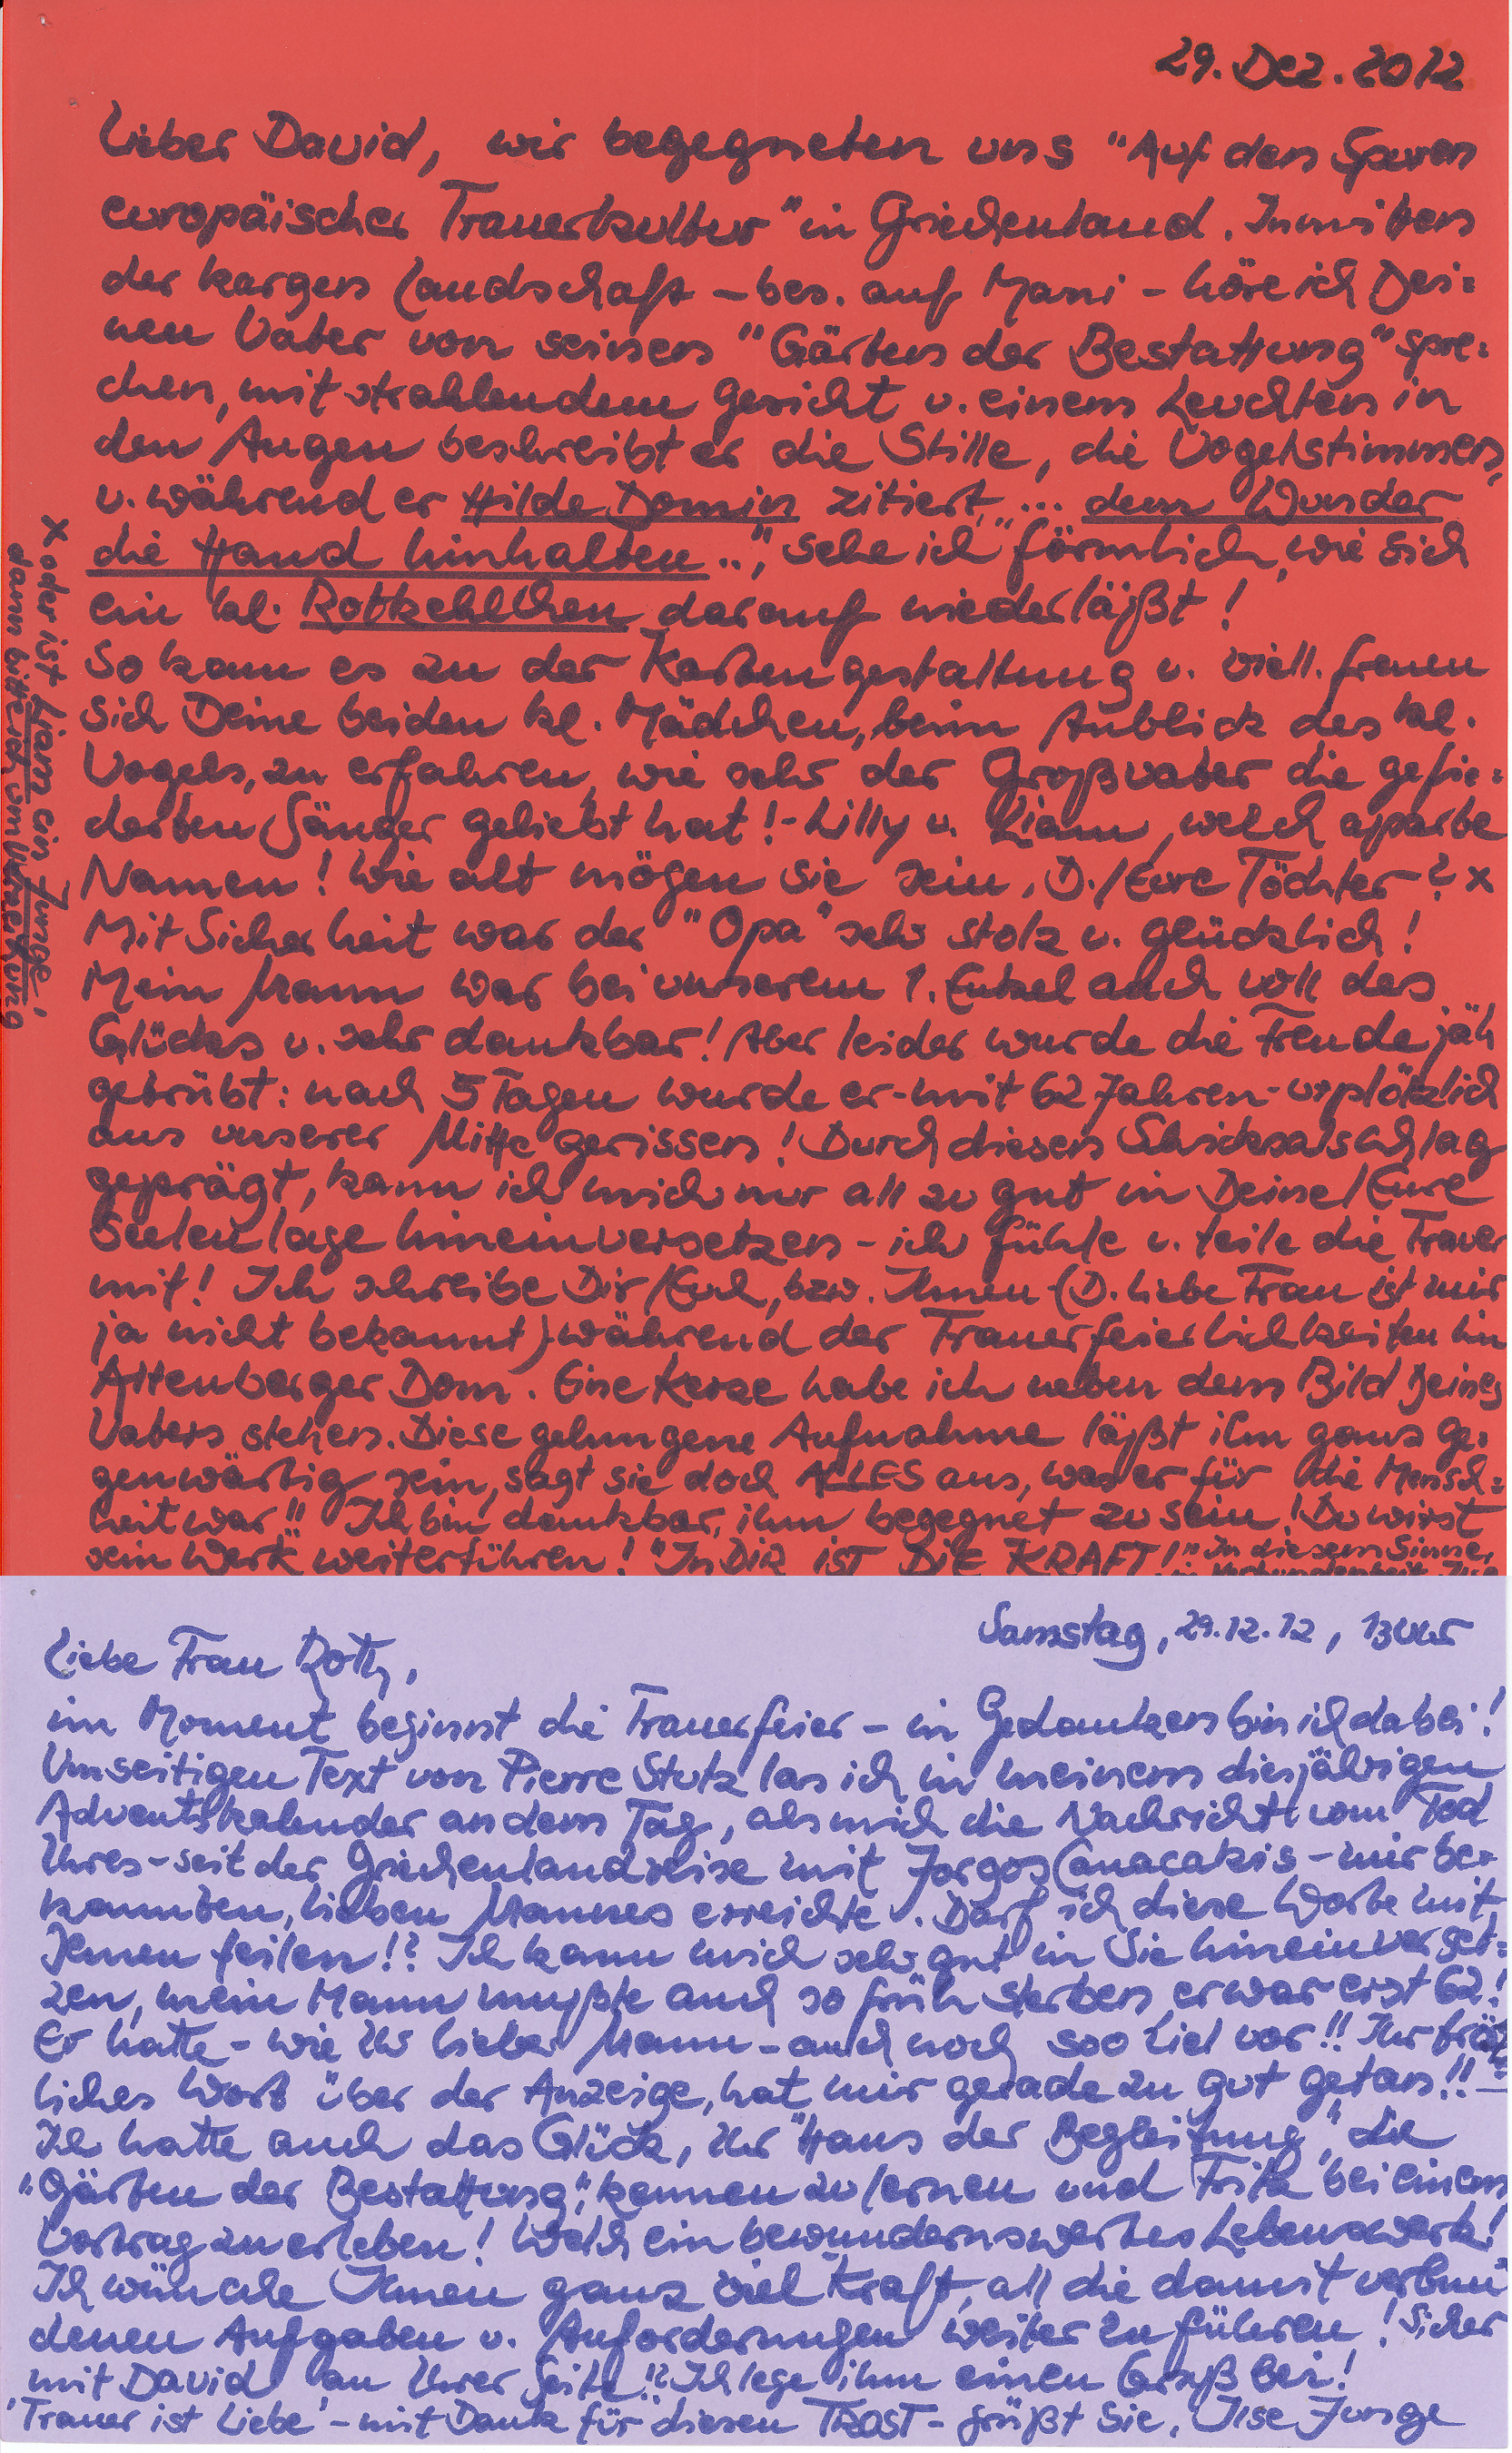 29. Dez. 2012
Lieber David, wir begegneten uns "Auf den Spuren
europäischer Trauerkultur" in Griechenland. Inmitten
der kargen Landschaft - bes. auf Mani - höre ich Dei=
nen Vater von seinen "Gärten der Bestattung" spre=
chen, mit strahlendem Gesicht u. einem Leuchten in
den Augen beschreibt er die Stille, die Vogelstimmen,
u. während er Hilde Domin zitiert "... dem Wunder
die Hand hinhalten ..", sehe ich förmlich, wie sich
ein kl. Rotkehlchen darauf niederläßt!
So kam es zu der Kartengestaltung u. viell. freuen
sich Deine beiden kl. Mädchen, beim Anblick des kl.
Vogels, zu erfahren, wie sehr der Großvater die gefie=
derten Sänger geliebt hat! - Lilly u. Liam, welch aparte
Namen! Wie alt mögen sie sein, D./Eure Töchter? x
Mit Sicherheit war der "Opa" sehr stolz u. glücklich!
Mein Mann war bei unserem 1. Enkel auch voll des
Glückes u. sehr dankbar! Aber leider wurde die Freude jäh
getrübt: nach 5 Tagen wurde er - mit 62 Jahren - urplötzlich
aus unserer Mitte gerissen! Durch diesen Schicksalsschlag
geprägt, kann ich mich nur all zu gut in Deine/Eure
Seelenlage hineinversetzen - ich fühle u. teile die Trauer
mit! Ich schreibe Dir/Euch, bzw. Ihnen (D. liebe Frau ist mir
ja nicht bekannt) während der Trauerfeierlichkeiten im
Altenberger Dom. Eine Kerze habe ich neben dem Bild Deines
Vaters stehen. Diese gelungene Aufnahme läßt ihn ganz ge=
genwärtig sein, sagt sie doch ALLES aus, was er für die Mensch=
heit war!! Ich bin dankbar, ihm begegnet zu sein! Du wirst
sein "Werk" weiterführen! "In DIR IST DIE KRAFT!" In diesem Sinne,
x oder ist Liam ein Junge,
dann bitte ich um Verzeihung
Samstag, 29.12.12, 13 Uhr
Liebe Frau Roth,
im Moment beginnt die Trauerfeier - in Gedanken bin ich dabei!
Umseitigen Text von Pierre Stutz las ich in meinem diesjährigen
Adventskalender an dem Tag, als mich die Nachricht vom Tod
Ihres - seit der Griechenlandreise mit Jorgos Canacakis - mir be=
kannten, lieben Mannes erreichte. Darf ich diese Worte mit
Ihnen teilen!? Ich kann mich sehr gut in Sie hineinverset=
zen, mein Mann mußte auch so früh sterben, er war erst 62!
Er hatte - wie Ihr lieber Mann - auch noch soo viel vor!! Ihr tröst
liches Wort über der Anzeige, hat mir geradezu gut getan!! -
Ich hatte auch das Glück, Ihr "Haus der Begleitung", die
"Gärten der Bestattung", kennen zu lernen und Fritz bei einem
Vortrag zu erleben! Welch ein bewundernswertes Lebenswerk!
Ich wünsche Ihnen ganz viel Kraft, all die damit verbun
denen Aufgaben u. Anforderungen weiter zu führen! Sicher
mit David an Ihrer Seite!? Ich lege ihm einen Gruß bei!
'Trauer ist Liebe' - mit Dank für diesen TROST - grüßt Sie, Ilse Junge